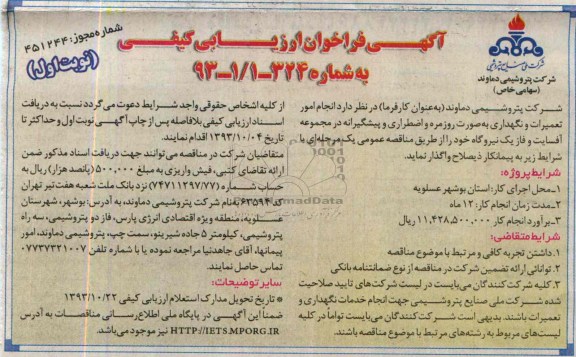 شرکت ملی صنایع پتروشیمی
شرکت پتروشیمی دماوند
(سهامی خاص)
آگهی فراخوان ارزیابی کیفی
به شماره ۳۲۴-۱/۱-۹۳
شماره مجوز: ۴۵۱۲۴۴
(نوبت اول)
شرکت پتروشیمی دماوند (به‌عنوان کارفرما) در نظر دارد انجام امور
تعمیرات و نگهداری به‌صورت روزمره و اضطراری و پیشگیرانه در مجموعه
آفسایت و فاز یک نیروگاه خود را از طریق مناقصه عمومی یک مرحله‌ای با
شرایط زیر به پیمانکار ذیصلاح واگذار نماید.
شرایط پروژه:
۱-محل اجرای کار: استان بوشهر عسلویه
۲-مدت زمان انجام کار: ۱۲ ماه
۳-برآورد انجام کار ۱۱,۴۲۸,۵۰۰,۰۰۰ ریال
شرایط متقاضی:
۱. داشتن تجربه کافی و مرتبط با موضوع مناقصه
۲. توانائی ارائه تضمین شرکت در مناقصه از نوع ضمانتنامه بانکی
۳. کلیه شرکت کنندگان می‌بایست در لیست شرکت های تایید صلاحیت
شده شرکت ملی صنایع پتروشیمی جهت انجام خدمات نگهداری و
تعمیرات باشند. بدیهی است شرکت کنندگان می‌بایست تواماً در کلیه
لیست‌های مربوط به رشته‌های مرتبط با موضوع مناقصه باشند.
از کلیه اشخاص حقوقی واجد شرایط دعوت می‌گردد نسبت به دریافت
اسناد ارزیابی کیفی بلافاصله پس از چاپ آگهی نوبت اول و حداکثر تا
تاریخ ۱۳۹۳/۱۰/۰۴ اقدام نمایند.
متقاضیان شرکت در مناقصه می‌توانند جهت دریافت اسناد مذکور ضمن
ارائه تقاضای کتبی، فیش واریزی به مبلغ ۵۰۰,۰۰۰ (پانصد هزار) ریال به
حساب شماره (۷۴۷۱۱۲۹۷/۷۷) نزد بانک ملت شعبه هفت تیر تهران
کد ۶۳۵۹۴ به‌نام شرکت پتروشیمی دماوند، به آدرس: بوشهر، شهرستان
عسلویه، منطقه ویژه اقتصادی انرژی پارس، فاز دو پتروشیمی، سه راه
پتروشیمی، کیلومتر ۵ جاده شیرینو، سمت چپ، پتروشیمی دماوند، امور
پیمانها، آقای جاهدنیا مراجعه نموده یا با شماره تلفن ۰۷۷۳۷۳۲۱۰۰۷
تماس حاصل نمایند.
سایر توضیحات:
* تاریخ تحویل مدارک استعلام ارزیابی کیفی ۱۳۹۳/۱۰/۲۲
ضمناً این آگهی در پایگاه ملی اطلاع‌رسانی مناقصات به آدرس
HTTP://IETS.MPORG.IR نیز موجود می‌باشد.